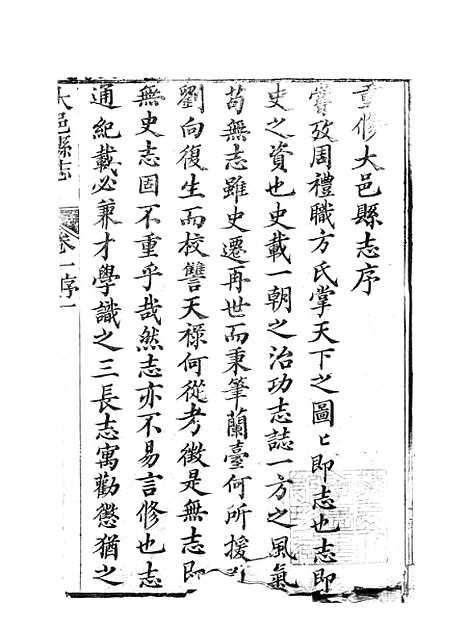 重修大邑縣志序
嘗攷周禮職方氏掌天下之圖〻即志也志即
史之資也史載一朝之治功志誌一方之風氣
苟無志雖史遷再世而秉筆蘭臺何所援
劉向復生而校讐天祿何從考徵是無志即
無史志固不重乎哉然志亦不易言修也志
通紀載必兼才學識之三長志寓勸懲猶之
大邑縣志 卷一序 一